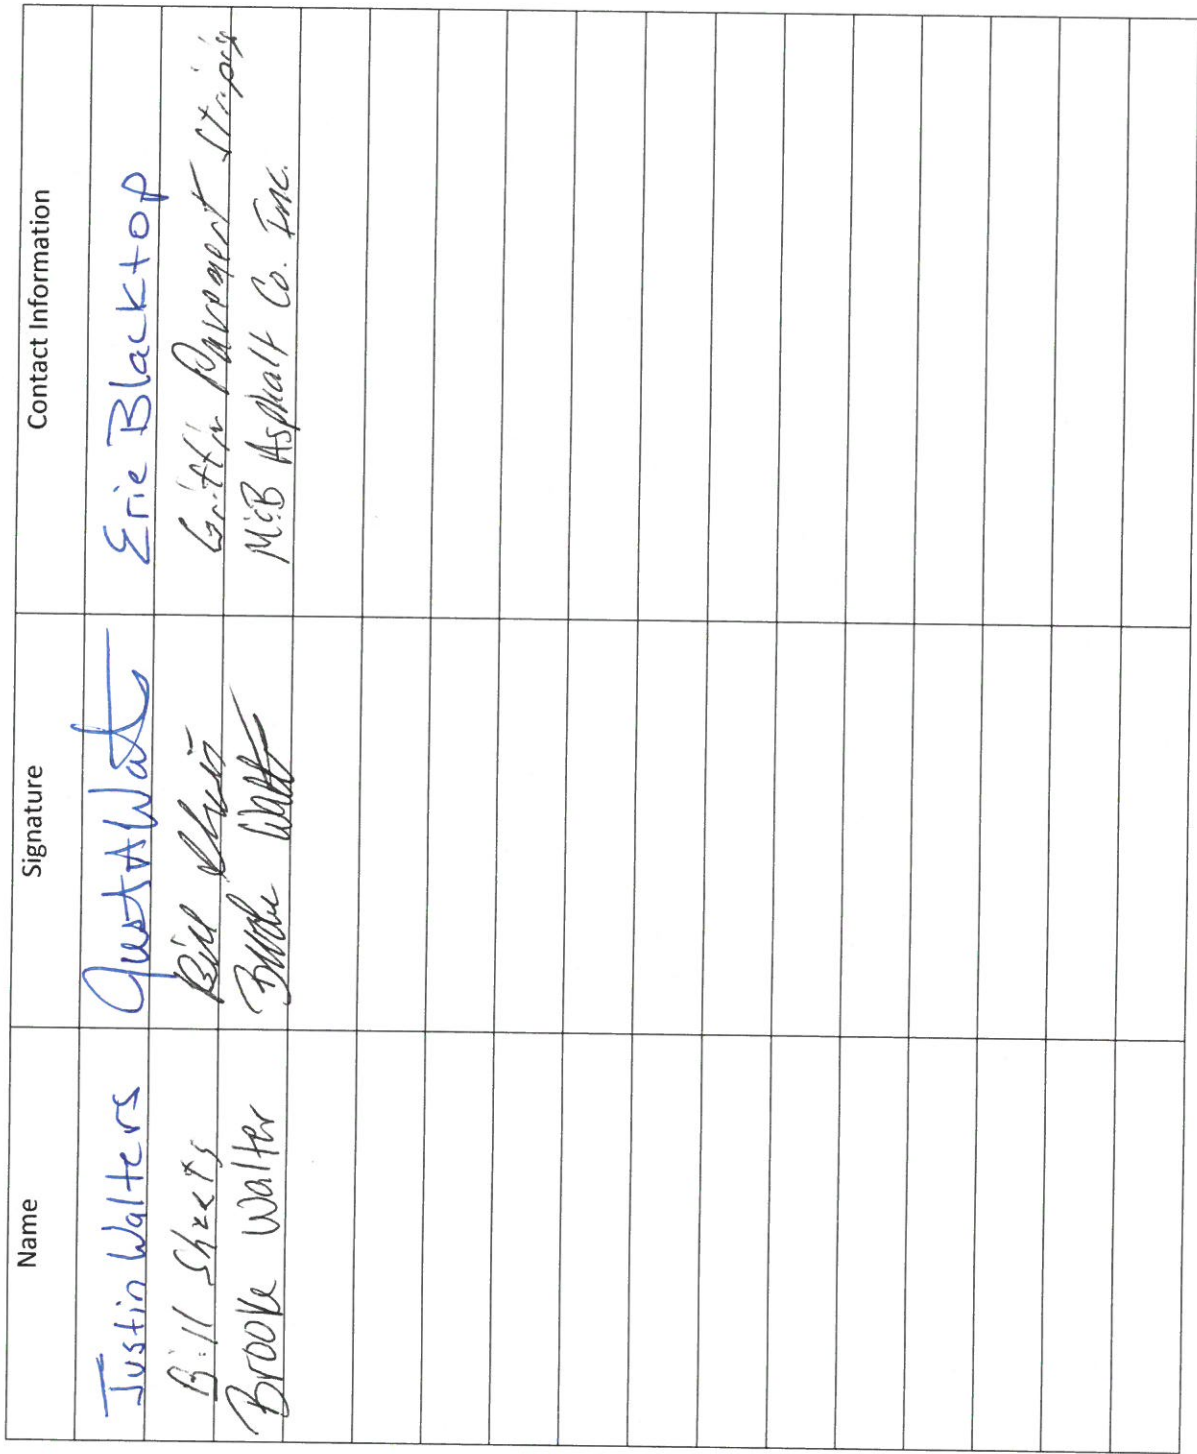 Name Signature Contact Information
Justin Walters Erie Blacktop
Bill Sheets Bill Griffin Pavement Striping
Brooke Walter Brooke Walt M&B Asphalt Co. Inc.